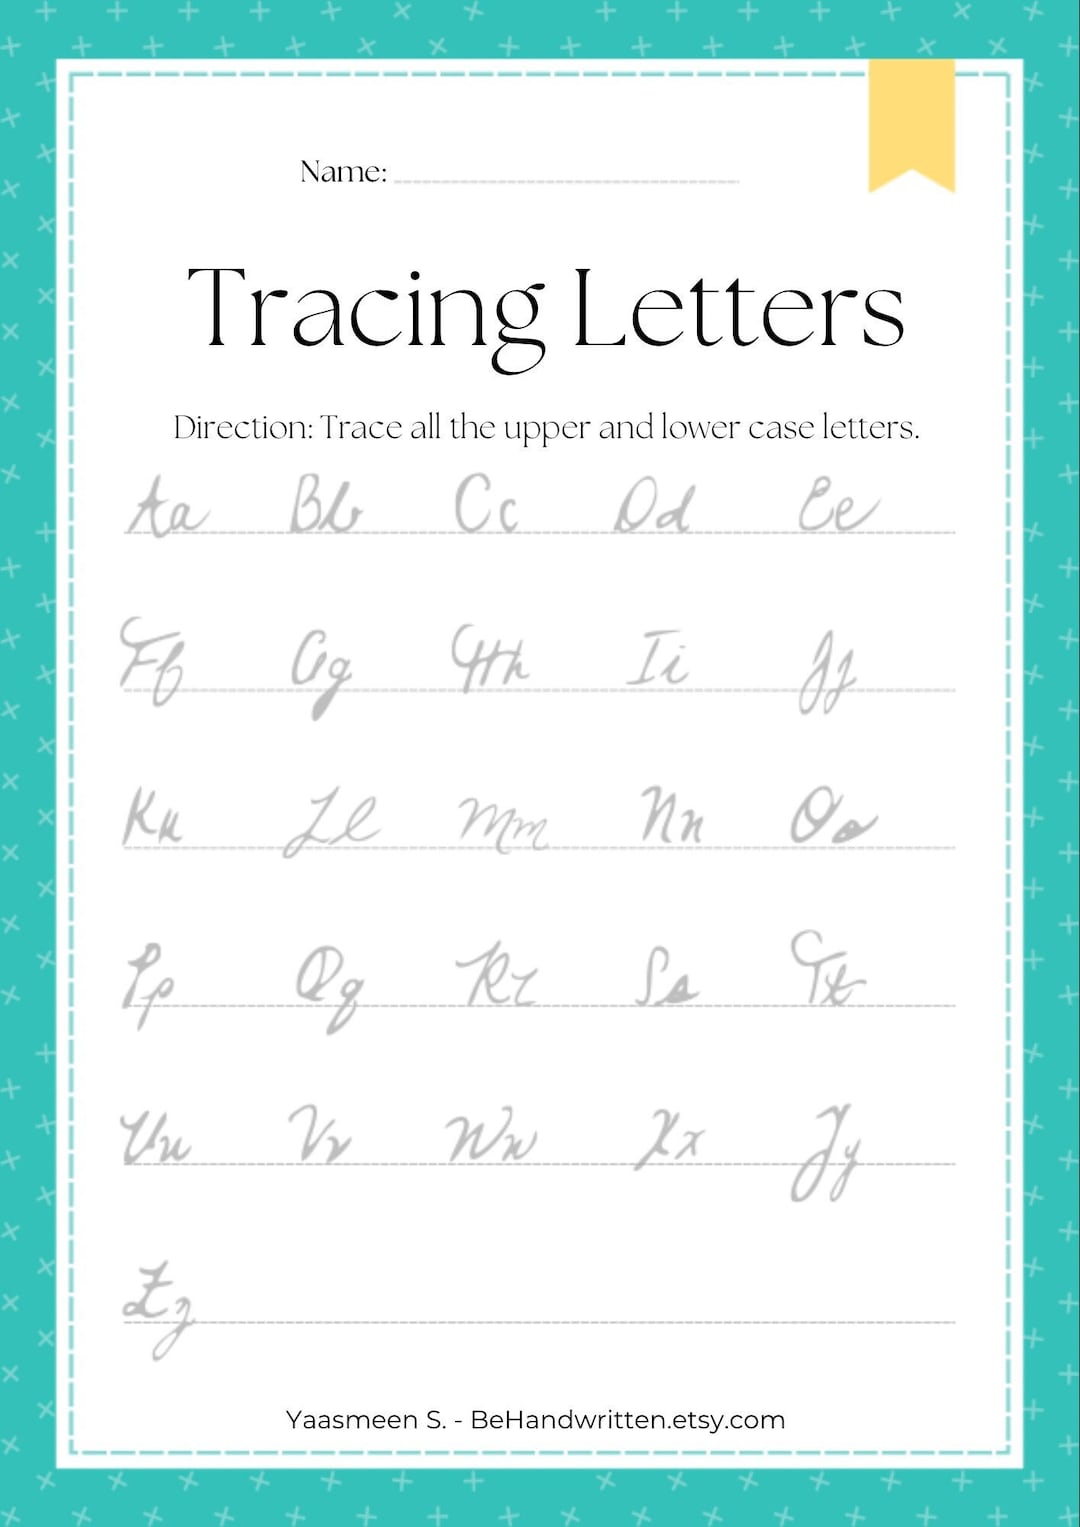 Name:
Tracing Letters
Direction: Trace all the upper and lower case letters.
Aa Bb Cc Dd Ee
Ff Gg Hh Ii Jj
Kk Ll Mm Nn Oo
Pp Qq Rr Ss Tt
Uu Vv Ww Xx Yy
Zz
Yaasmeen S. - BeHandwritten.etsy.com